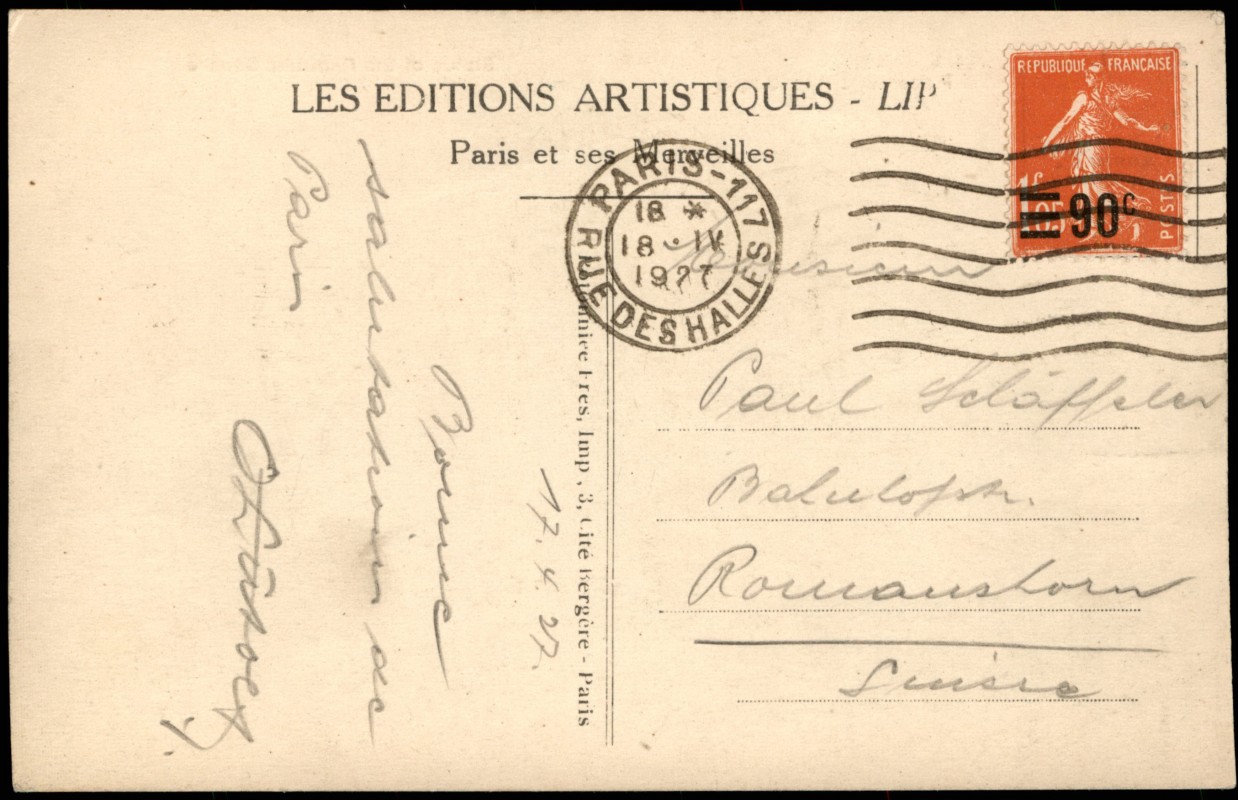 LES EDITIONS ARTISTIQUES - LIP
Paris et ses Merveilles
REPUBLIQUE FRANÇAISE
1F05
90c
POSTES
PARIS-117
18 *
18 · IV
1927
RUE DES HALLES
Frès, Imp., 3, Cité Bergère - Paris
17. 4. 27.
Bonne
salutation de
Paris
Monsieur
Paul Schäffeler
Bahnhofstr.
Romanshorn
Suisse